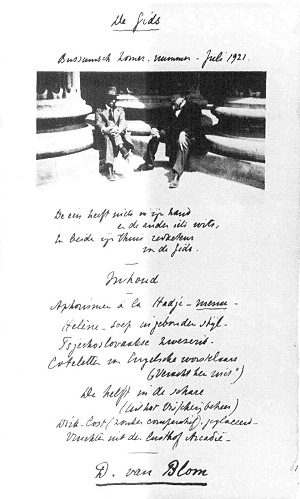 De Gids
Bussumsch Zomer-nummer - Juli 1921.
De een heeft niets in zijn hand
en de ander iets wits,
En beide zijn thuis redacteur
in de Gids.
Inhoud
Aphorismen à la Hadjé-menu-
Helène-soep in gebonden stijl-
Tsjechoslovaakse zwezerik-
Coteletten van Engelsche worstelaars
("Veracht hen niet")
De helft in de schare
(uit het Vrijheinbeheer)
Dirk-Cost (zonder comparatief), geglaceerd-
Vruchten uit den Lusthof Arcadië-
D. van Blom